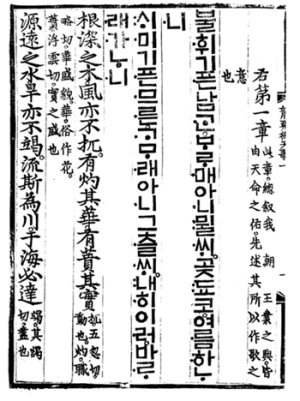 右第一章 此章總敍我 朝王業之興皆由天命之佑先述其所以作歌之
意也
불휘기픈남ᄀᆞᆫᄇᆞᄅᆞ매아니뮐ᄊᆡ곶됴코여름하ᄂᆞ
니
ᄉᆡ미기픈므른ᄀᆞᄆᆞ래아니그츨ᄊᆡ내히이러바ᄅᆞ
래가ᄂᆞ니
根深之木風亦不扤有灼其華有蕡其實 扤五忽切動也灼職
略切華盛貌華俗作花蕡浮雲切實之盛也
源遠之水旱亦不竭流斯為川于海必達 竭其謁切盡也